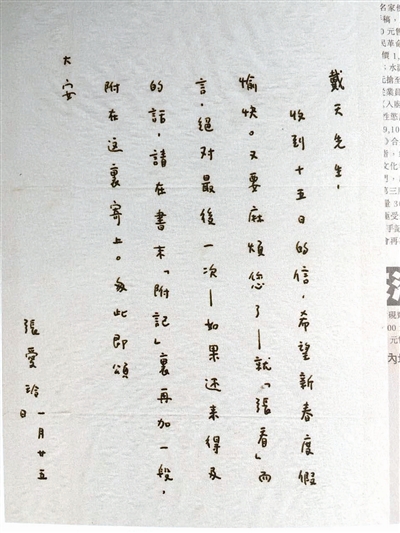 戴天先生，
收到十五日的信，希望新春度假
愉快。又要麻煩您了—就「張看」而
言，絕对最後一次—如果还来得及
的話，請在書末「附記」裏再加一段，
附在这裏寄上。匆此即頌
大安
張愛玲
一月廿五
日